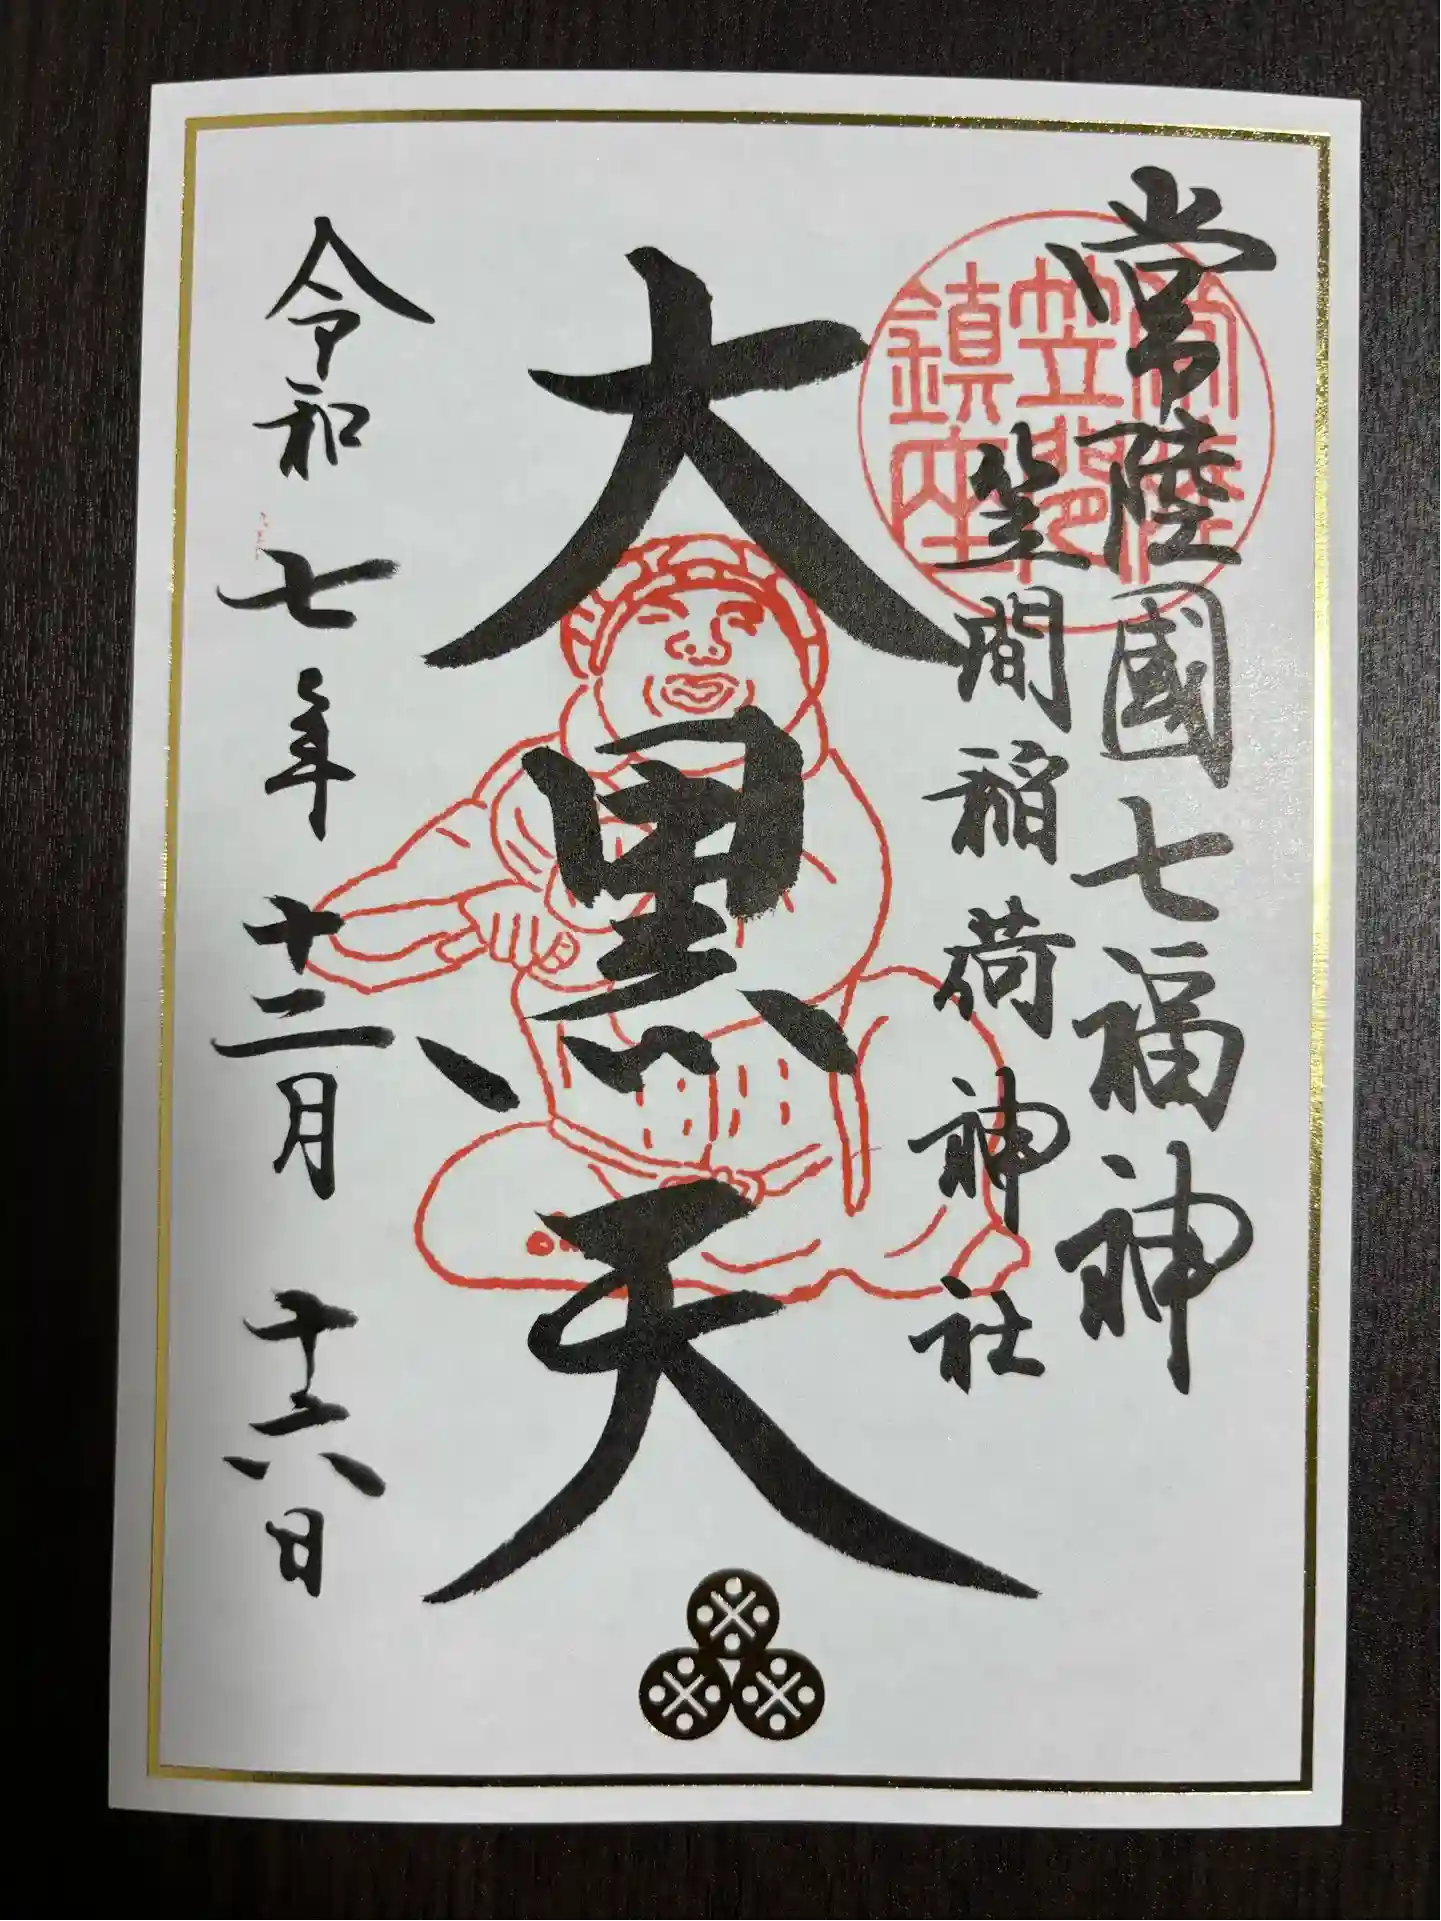 常陸國七福神
笠間稲荷神社
常陸
笠間
鎮座
大黒天
令和七年十二月十六日